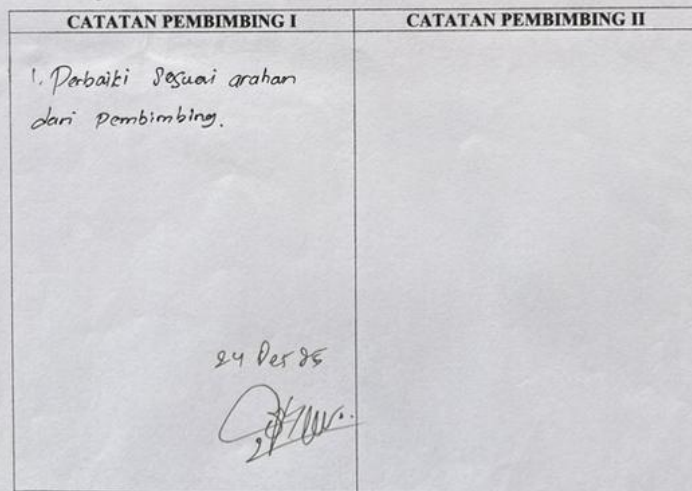 CATATAN PEMBIMBING I
CATATAN PEMBIMBING II
1. Perbaiki Sesuai arahan
dari Pembimbing.
24 Des 25